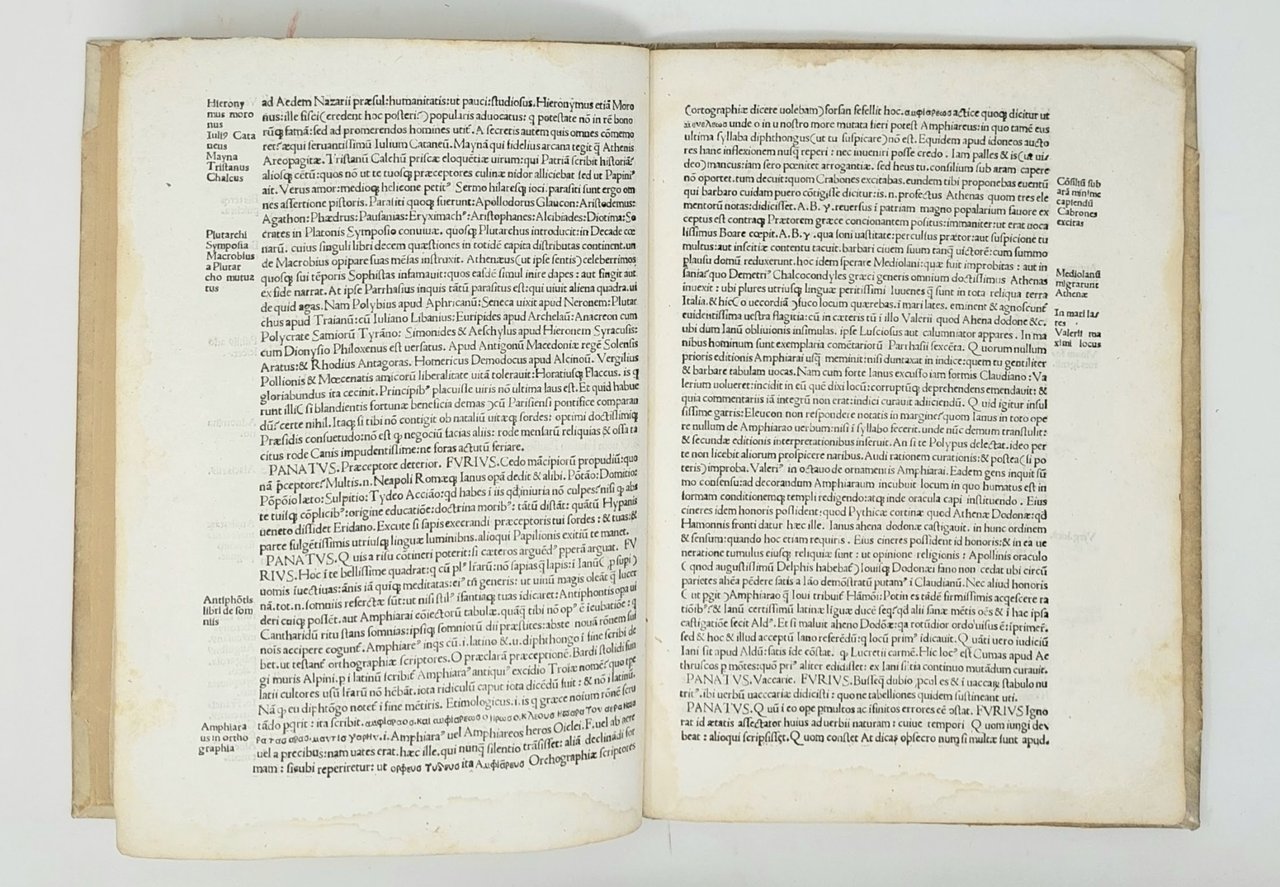 Hierony
mus moro
nus
Iuliꝰ Cata
neus
Mayna
Tristanus
Chalcus
Plutarchi
Symposia
Macrobius
a Plutar
cho mutua
tus
Antiphõtis
libri de som
niis
Amphiara
us in ortho
graphia
ad Aedem Nazarii præsul:humanitatis:ut pauci:studiosus. Hieronymus etiã Moro
nus:ille fisci(credent hoc posteri?)popularis aduocatus: q potestate nõ in rẽ bono
rũq; fatmã:sed ad promerendos homines utiť. A secretis autem quis omnes cõmemo
ret?æqui seruantissimũ Iulium Cataneũ. Maynã qui fidelius arcana tegit q̃ Athenis
Areopagitæ. Tristanũ Calchũ priscæ eloquẽtiæ uirum:qui Patriã scribit historiã?
aliosq; cẽtũ:quos nõ ut te tuosq; præceptores culinæ nidor alliciebat sed ut Papiniꝰ
ait. Verus amor:medioq; helicone petitꝰ Sermo hilaresq; ioci. parasiti sunt ergo om
nes assertione pistoris. Parasiti quoq; fuerunt:Apollodorus Glaucon:Aristodemus:
Agathon:Phædrus:Pausanias:Eryximachꝰ:Aristophanes:Alcibiades:Diotima:So
crates in Platonis Symposio conuiuæ. quosq; Plutarchus introducit:in Decade cœ
narũ. cuius singuli libri decem quæstiones in totidẽ capita distributas continent.un
de Macrobius opipare suas mẽsas instruxit. Athenæus(ut ipse sentis)celeberrimos
quosq; sui tẽporis Sophistas infamauit:quos easdẽ simul inire dapes: aut fingit aut
ex fide narrat. At ipse Parrhasius inquis tãtũ parasitus est:qui uiuit aliena quadra.ui
de quid agas. Nam Polybius apud Aphricanũ:Seneca uixit apud Neronem:Plutar
chus apud Traianũ:cũ Iuliano Libanius:Euripides apud Archelaũ:Anacreon cum
Polycrate Samiorũ Tyrãno: Simonides & Aeschylus apud Hieronem Syracusis:
cum Dionysio Philoxenus est uersatus. Apud Antigonũ Macedoniæ regẽ Solensis
Aratus:& Rhodius Antagoras. Homericus Demodocus apud Alcinoũ. Vergilius
Pollionis & Mœcenatis amicorũ liberalitate uitã tolerauit:Horatiusq; Flaccus. is q
gloriabundus ita cecinit. Principibꝰ placuisse uiris nõ ultima laus est. Et quid habue
runt illi si blandientis fortunæ beneficia demas ɔcũ Parisiensi pontifice comparan
dũ?certe nihil. Itaq; si tibi nõ contigit ob nataliũ uitæq; sordes: optimi doctissimiq;
Præsidis consuetudo:nõ est q negociũ facias aliis: rode mensarũ reliquias & ossa ta
citus rode Canis impudentissime:ne foras actutũ feriare.
PANATVS. Præceptore deterior. FVRIVS. Cedo mãcipiorũ propudiũ:quo
nã p̃ceptore?Multis.n.Neapoli Romæq; Ianus opã dedit & alibi. Põtão:Domitio:
Põpõio læto:Sulpitio:Tydeo Acciáo:qd habes i iis qd iniuria nõ culpes?nisi q abs
te tuisq; cõplicibꝰ:origine educatiõe:doctrina moribꝰ: tãtũ distãt: quãtũ Hypanis
ueneto dissidet Eridano. Excute si sapis execrandi præceptoris tui sordes: & tuas:&
parte fulgẽtissimis utriusq; linguæ luminibus.alioqui Papilionis exitiũ te manet.
PANATVS. Q uis a risu cõtineri poterit:si cæteros arguẽdꝰ pperã arguat. FV
RIVS. Hoc i te bellissime quadrat:q cũ plꝰ lřarũ:nõ sapias q̃ lapis:i Ianũ(p supi)
uomis iuectiuas:ãnis iã quiq; meditatas:eiꝰ tñ generis: ut uinũ magis oleãt q̃ lucer
nã.tot.n.somniis refertæ sũt:ut nisi stilꝰ isantiaq; tuas idicaret:Antiphontis opa ui
deri cuiq; possẽt.aut Amphiarai cõiectorũ tabulæ.quãq; tibi nõ opꝰ ẽ icubatiõe: q
Cantharidũ ritu stans somnias:ipsiq; somniorũ dii præsultes: abste nouã rõnem sui
nois accipere cogunť. Amphiareꝰ inqs cũ.i.latino & .u.diphthongo i fine scribi de
bet.ut testanť orthographiæ scriptores. O præclarã præceptionẽ. Bardi stolidi sun
gi muris Alpini. p i latinũ scribiť Amphiaraꝰ antiquiꝰ excidio Troiæ nomẽ?quo tpe
latii cultores usũ lřarũ nõ hẽbãt.iota ridiculũ caput iota dicẽdũ fuit: & nõ i latinũ.
Nã q eu diphtõgo noteť i fine mẽtiris. Etimologicus.i.is q græce noium rõnẽ scru
tãdo pqrit: ita scribit.
uel a precibus:nam uates erat.hæc ille.qui nunq̃ silentio trãsisset: aliã declinãdi for
mam: sicubi reperiretur: ut ορφευσ Τυδευσ ita Αμφιαρευσ Orchographiæ scriptores
(ortographiæ dicere uolebam)forsan fefellit hoc. αμφιαρεωσ actice quoq; diciťur ut
μενελεωσ unde o in u nostro more mutata fieri potest Amphiareus:in quo tamẽ eus
ultima syllaba diphthongus(ut tu suspicare)nõ est. Equidem apud idoneos aucto
res hanc inflexionem nusq̃ reperi: nec inueniri posse credo. Iam palles & is(ut ui
deo)mancus:iam sero pœnitet arrogantiæ. sed heus tu.consilium sub aram capere
nõ oportet.tum decuit:quom Crabones excitabas.eundem tibi proponebas euentũ
qui barbaro cuidam puero cõtigisse diciťur:is.n.profectus Athenas quom tres ele
mentorũ notas:didicisset. A.B.γ.reuersus i patriam magno popularium fauore ex
ceptus est contraq; Prætorem græce concionantem positus:imminuit:ut erat uoca
lissimus Boare cœpit. A.B.γ.qua soni uastitate:perculsus prætor:aut suspicione tu
multus:aut inscitiæ contentu tacuit.barbari ciuem suum tanq̃ uictorẽ:cum summo
plausu domũ reduxerunt.hoc idem sperare Mediolani:quæ fuit improbitas: aut in
sania?quo Demetriꝰ Chalcocondyles græci generis omnium doctissimus Athenas
inuexit: ubi plures utriusq; linguæ peritissimi Iuuenes q̃ sunt in tota reliqua terra
Italia.& hic(O uecordiã)suco locum quærebas.i mari lates. eminent & agnoscunť
euidentissima uestra flagitia:cũ in cæteris tũ i illo Valerii quod Ahena dodonæ &c.
ubi dum Ianũ obliuionis insimulas. ipse Lusciosus aut calumniator appares. In ma
nibus hominum sunt exemplaria cõmẽtariorũ Parrhasi sexcẽta. Q uorum nullum
prioris editionis Amphiarai usq̃ meminit:nisi duntaxat in indice:quem tu gentiliter
& barbare tabulam uocas. Nam cum forte Ianus excusso iam formis Claudiano:Va
lerium uolueret:incidit in eũ quẽ dixi locũ:corruptũq; deprehendens emendauit:&
quia commentariis iã integrũ non erat:indici curauit adiiciendũ. Q uid igitur insul
sissime garris:Eleucon non respondere notatis in margine?quom Ianus in toto ope
re nullum de Amphiarao uerbum:nisi i syllabo fecerit.unde nũc demum transtulit:
& secundæ editionis interpretationibus inseruit. An si te Polypus delectat.ideo per
te non licebit aliorum prospicere naribus. Audi rationem curationis:& postea(si po
teris)improba. Valeriꝰ in octauo de ornamentis Amphiarai. Eadem gens inquit sũ
mo consensu:ad decorandum Amphiaraum incubuit locum in quo humatus est in
formam conditionemq; templi redigendo:atq; inde oracula capi instituendo. Eius
cineres idem honoris possident:quod Pythicæ cortinæ quod Athenæ Dodonæ:qd
Hamonnis fronti datur hæc ille. Ianus ahena dodonæ castigauit.in hunc ordinem
& sensum:quando hoc etiam requiris. Eius cineres possident id honoris:& in ea ue
neratione tumulus eiusq; reliquiæ sunt: ut opinione religionis: Apollinis oraculo
(quod augustissimũ Delphis habebať)Iouisq; Dodonæi fano non cedat ubi circũ
parietes ahẽa pẽdere satis a Iáo demõstratũ putamꝰ i Claudianũ. Nec aliud honoris
(ut pgit)Amphiarao q̃ Ioui tribuiť Hãmõi:Potin es tãdẽ firmissimis acqescere ra
tiõibꝰ?& Ianũ certissimũ latinæ liguæ ducẽ seq?qd alii sanæ mẽtis oẽs & i hac ipsa
castigatiõe secit Aldꝰ. Et si maluit aheno Dodõæ:qa rotũdior ordo uisus ẽ:isprimeř.
sed & hoc & illud acceptũ Iano referẽdũ:q locũ primꝰ idicauit. Q uãti uero iudiciũ
Iani sit apud Aldũ:satis ide cõstat. q Lucretii carmẽ. Hic locꝰ est Cumas apud Ae
thruscos p mõtes:quõ priꝰ aliter edidisset: ex Iani sĩtia continuo mutãdum curauit.
PANATVS. Vaccarie. FVRIVS. Busseq dubio pcul es & i uaccaꝶ stabulo nu
tritꝰ.ibi uerbũ uaccariæ didicisti: quo ne tabelliones quidem sustineant uti.
PANATVS. Q uũ i eo ope pmultos ac ifinitos errores eẽ ɔstat. FVRIVS Igno
rat id ætatis assectator huius aduerbii naturam: cuiue tempori Q uom iungi dex
beat: alioqui scripsisset. Q uom constet At dicas obsecro num si multæ sunt apud.
Cõsiliũ sub
arã minime
capiendũ
Cabrones
excitas
Mediolanũ
migrarunt
Athenæ
In mari la/
tes
Valerii ma
ximi locus